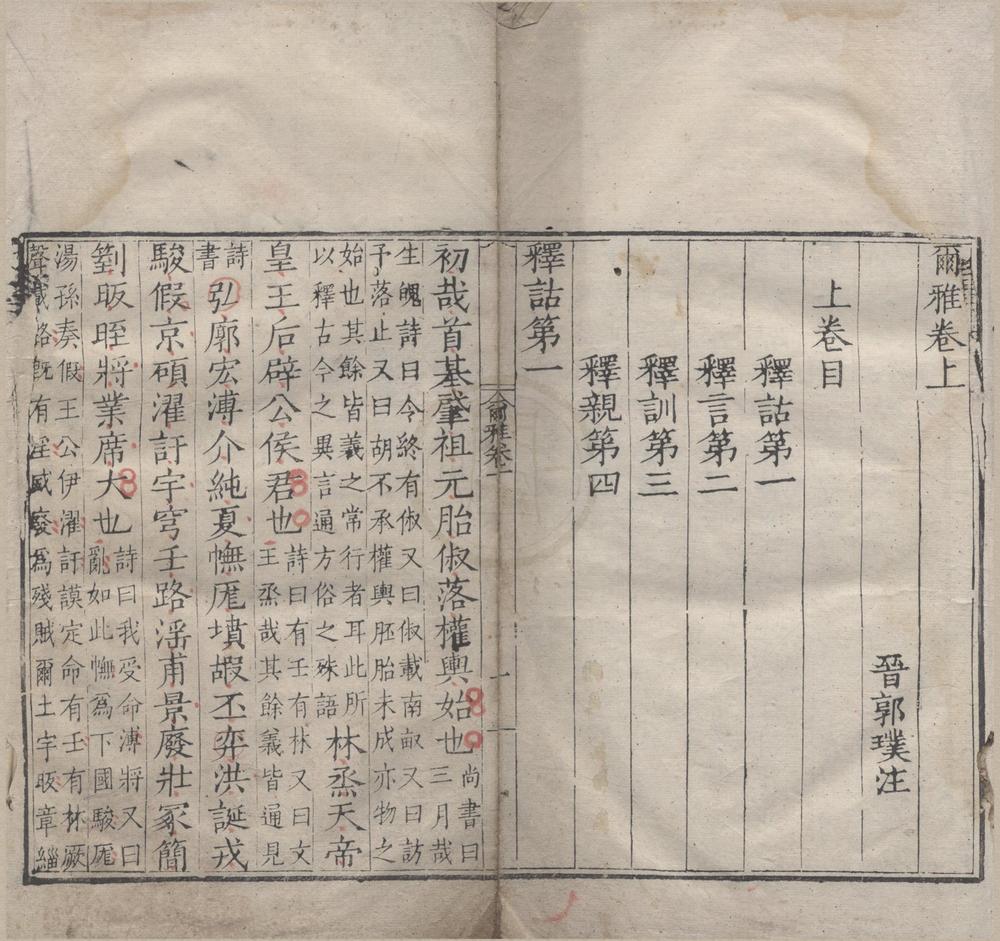 爾雅卷上
晉郭璞注
上卷目
釋詁第一
釋言第二
釋訓第三
釋親第四
釋詁第一
爾雅卷一
一
初哉首基肇祖元胎俶落權輿始也尚書曰三月哉
生魄詩曰令終有俶又曰俶載南畝又曰訪
予落止又曰胡不承權輿胚胎未成亦物之
始也其餘皆義之常行者耳此所以釋古今之異言通方俗之殊語林烝天帝
皇王后辟公侯君也詩曰有壬有林又曰文王烝哉其餘義皆通見
詩書弘廓宏溥介純夏幠厖墳嘏丕弈洪誕戎
駿假京碩濯訏宇穹壬路淫甫景廢壯冢簡
箌昄晊將業席大也詩曰我受命溥將又曰亂如此幠爲下國駿厖
湯孫奏假王公伊濯訏謨定命有壬有林厥
聲載路旣有淫威廢爲殘賊爾土宇昄章緇